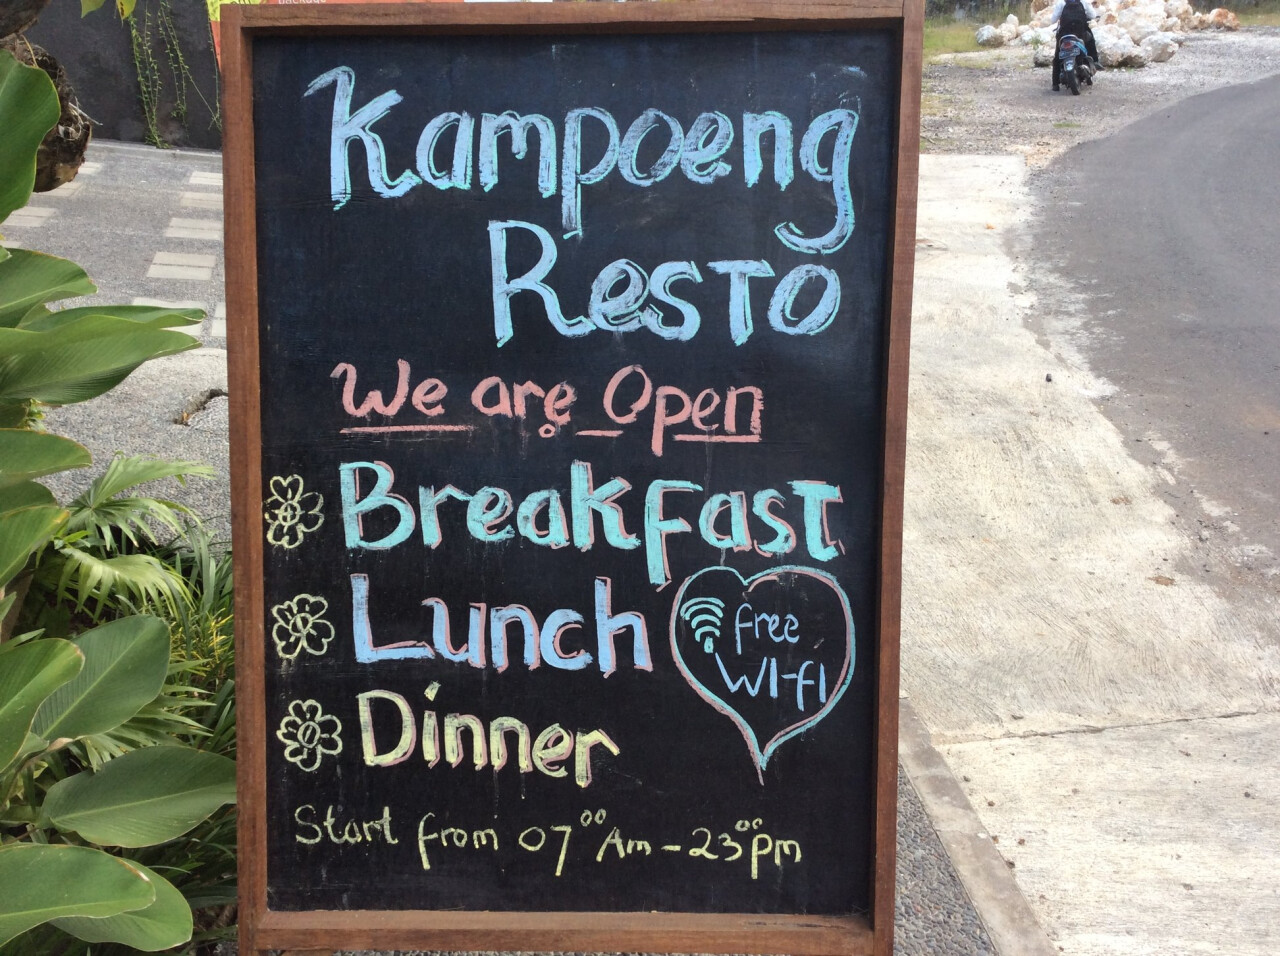 Kampoeng
Resto
We are Open
Breakfast
Lunch
free
WI-fI
Dinner
Start from 07⁰⁰ Am - 23⁰⁰ pm